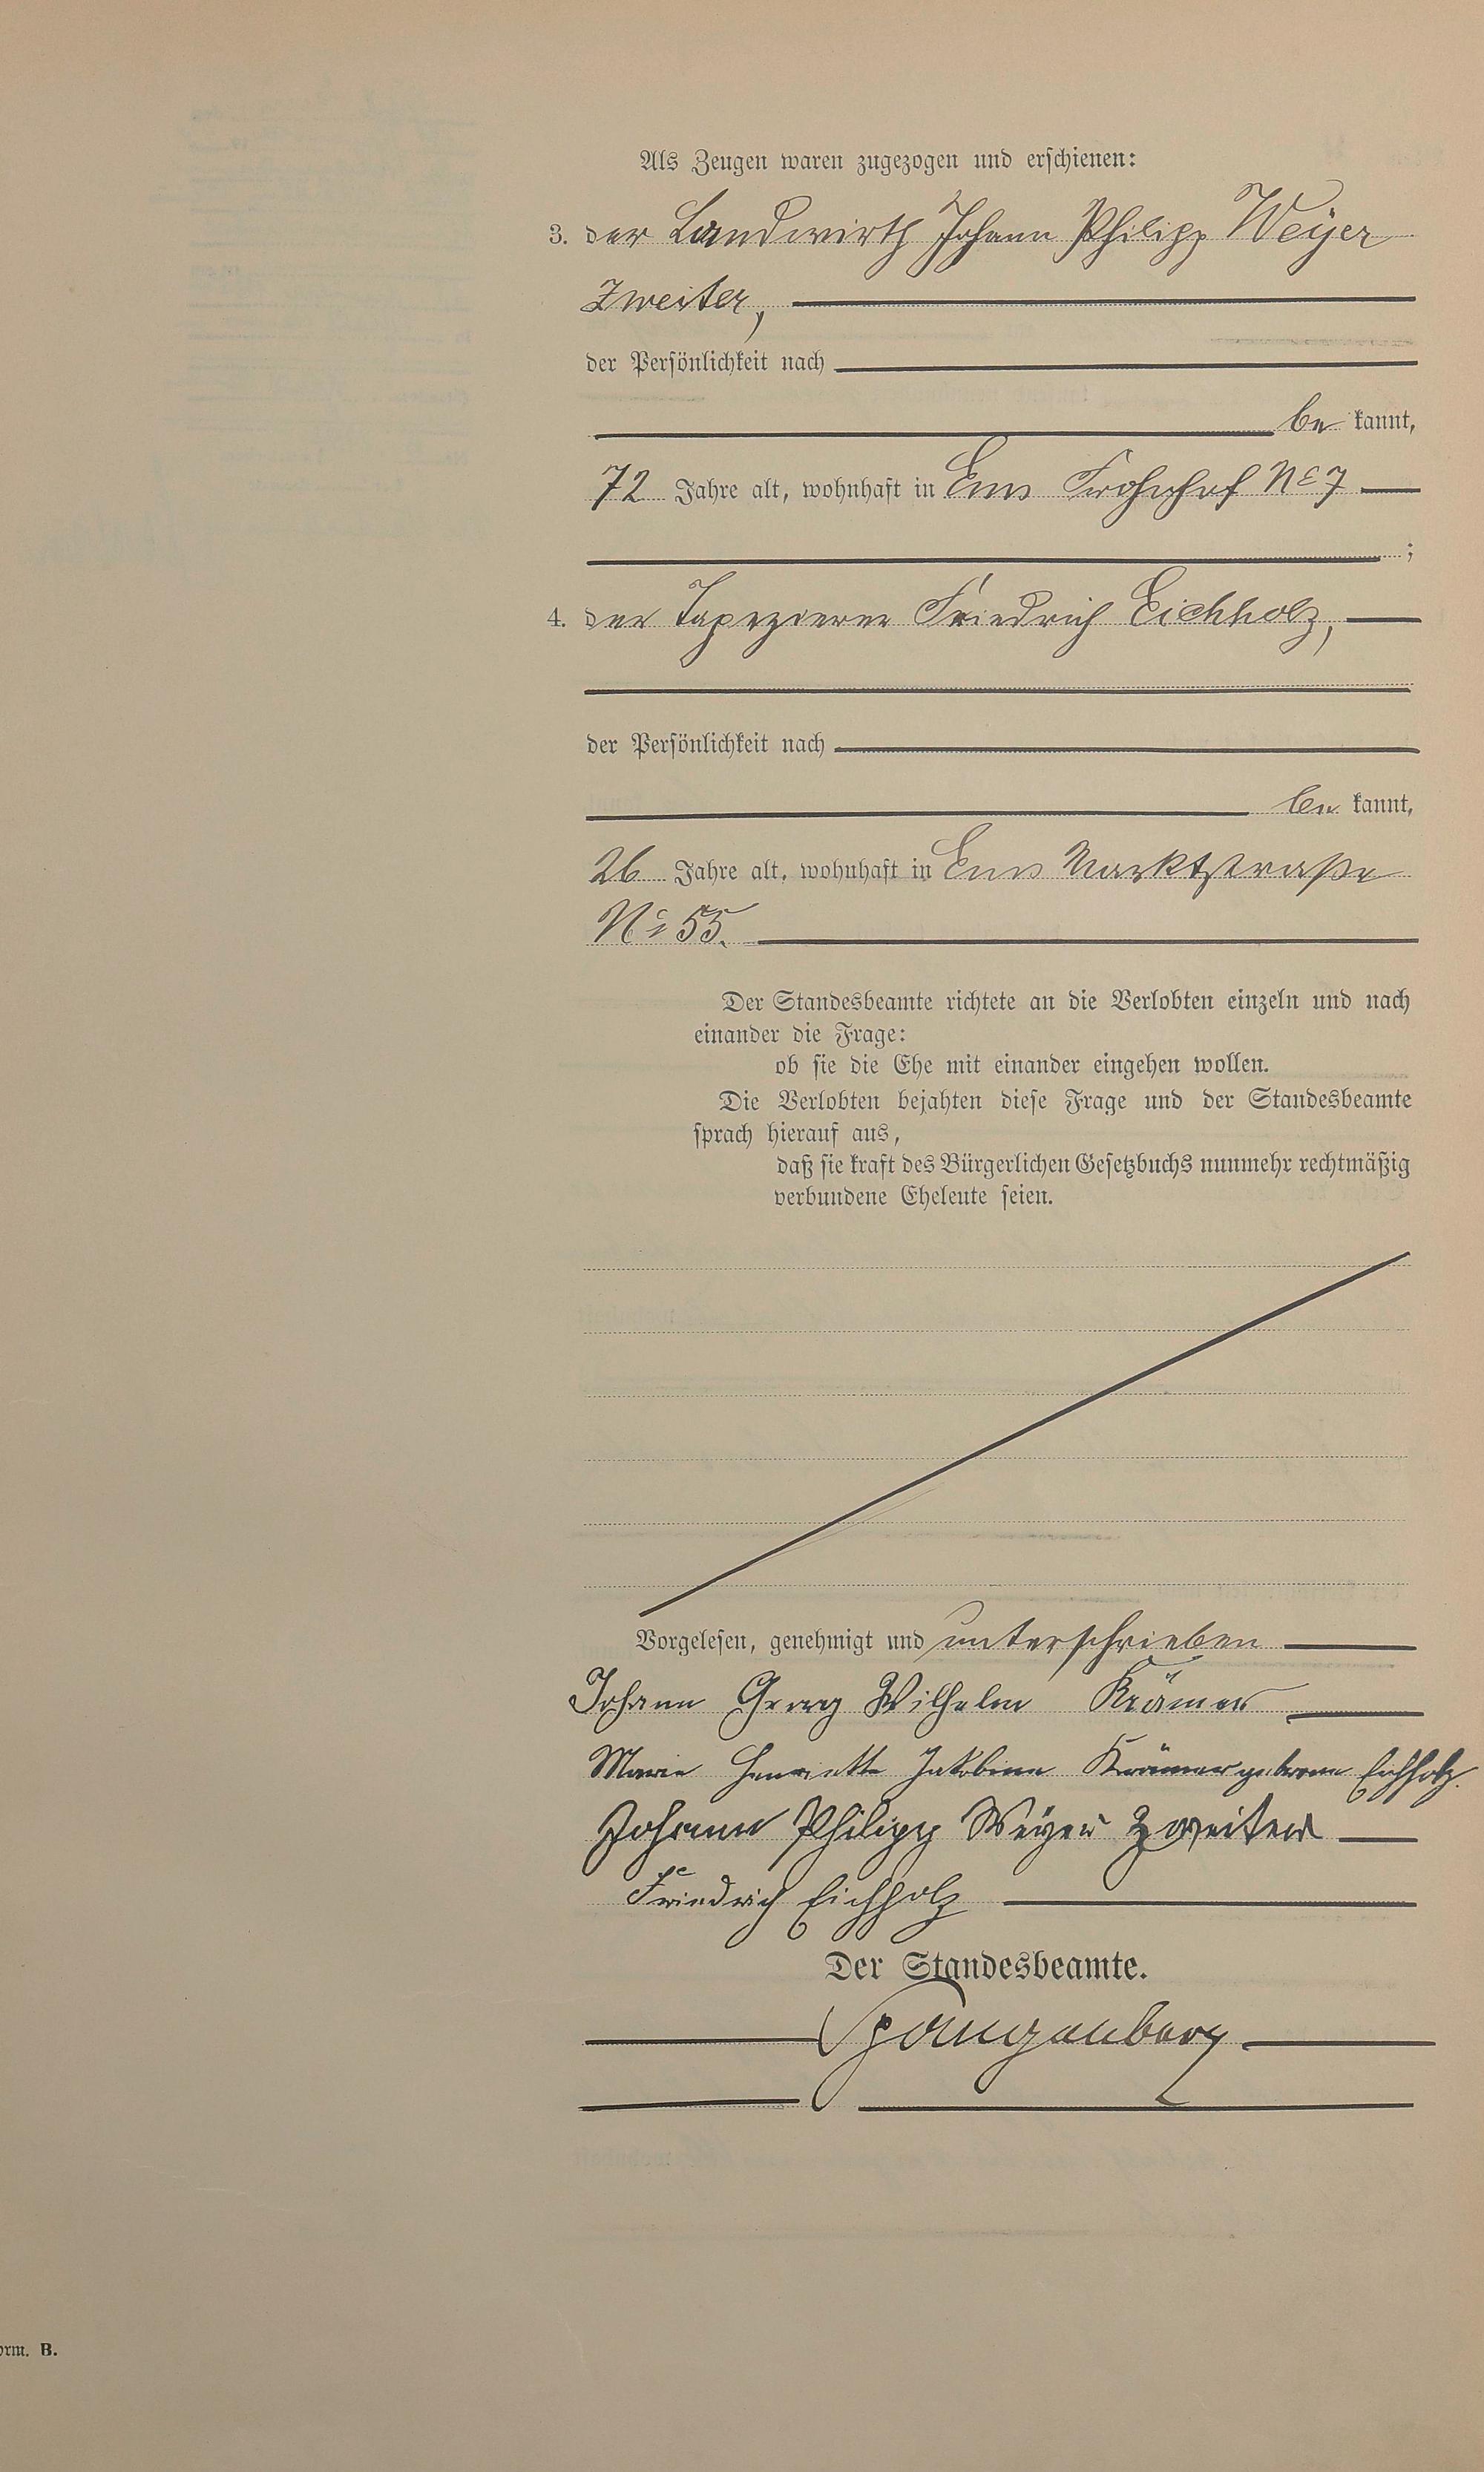 Als Zeugen waren zugezogen und erschienen:
3. der Landwirth Johann Philipp Weÿer
Zweiter,
der Persönlichkeit nach
be kannt,
72 Jahre alt, wohnhaft in Ems Frohnhof No 7
;
4. der Tapezierer Friedrich Eichholz,
der Persönlichkeit nach
be kannt,
26 Jahre alt, wohnhaft in Ems Marktstraße
No 55.
Der Standesbeamte richtete an die Verlobten einzeln und nach
einander die Frage:
ob sie die Ehe mit einander eingehen wollen.
Die Verlobten bejahten diese Frage und der Standesbeamte
sprach hierauf aus,
daß sie kraft des Bürgerlichen Gesetzbuchs nunmehr rechtmäßig
verbundene Eheleute seien.
Vorgelesen, genehmigt und unterschrieben
Johann Georg Wilhelm Krämer
Marie Henriette Jakobine Krämer geborene Eichholz.
Johann Philipp Weÿer Zweiter
Friedrich Eichholz
Der Standesbeamte.
Spangenberg
orm. B.